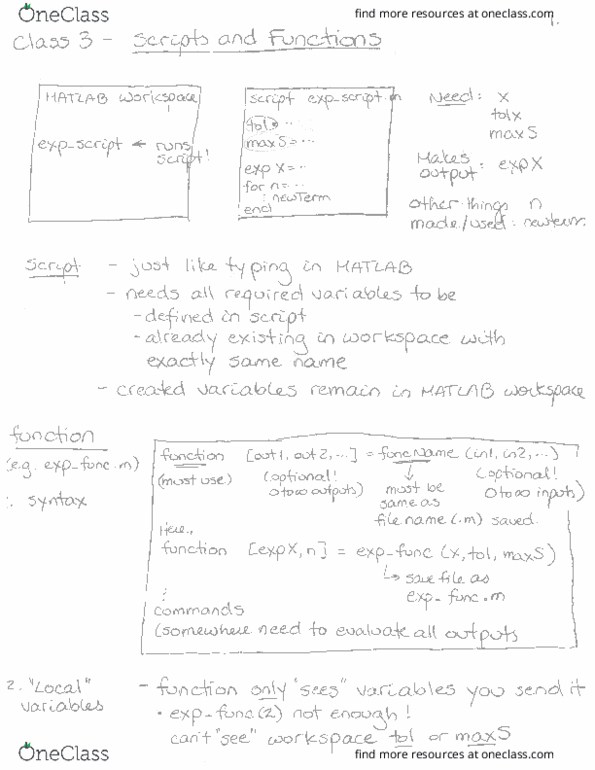 OneClass
find more resources at oneclass.com
1.
Class 3 - Scripts and Functions
MATLAB Workspace
exp_script ← runs script!
script exp_script.m
tol = ...
maxS = ...
expX = ...
for n = ...
: newTerm
end
Need: x
tolx
maxS
Makes output: expX
other things n
made/used: newterm
Script - just like typing in MATLAB
- needs all required variables to be
- defined in script
- already existing in workspace with
exactly same name
- created variables remain in MATLAB workspace
function
(e.g. exp_func.m)
syntax
function [out1, out2, ...] = funcName (in1, in2, ...)
(must use) (optional! 0 to ∞ outputs) must be same as file name (.m) saved. (optional! 0 to ∞ inputs)
Here,
function [expX, n] = exp-func (x, tol, maxS)
↳ save file as
exp_func.m
:
commands
(somewhere need to evaluate all outputs
2. "Local" variables
- function only "sees" variables you send it
• exp-func(2) not enough!
can't "see" workspace tol or maxS
OneClass
find more resources at oneclass.com